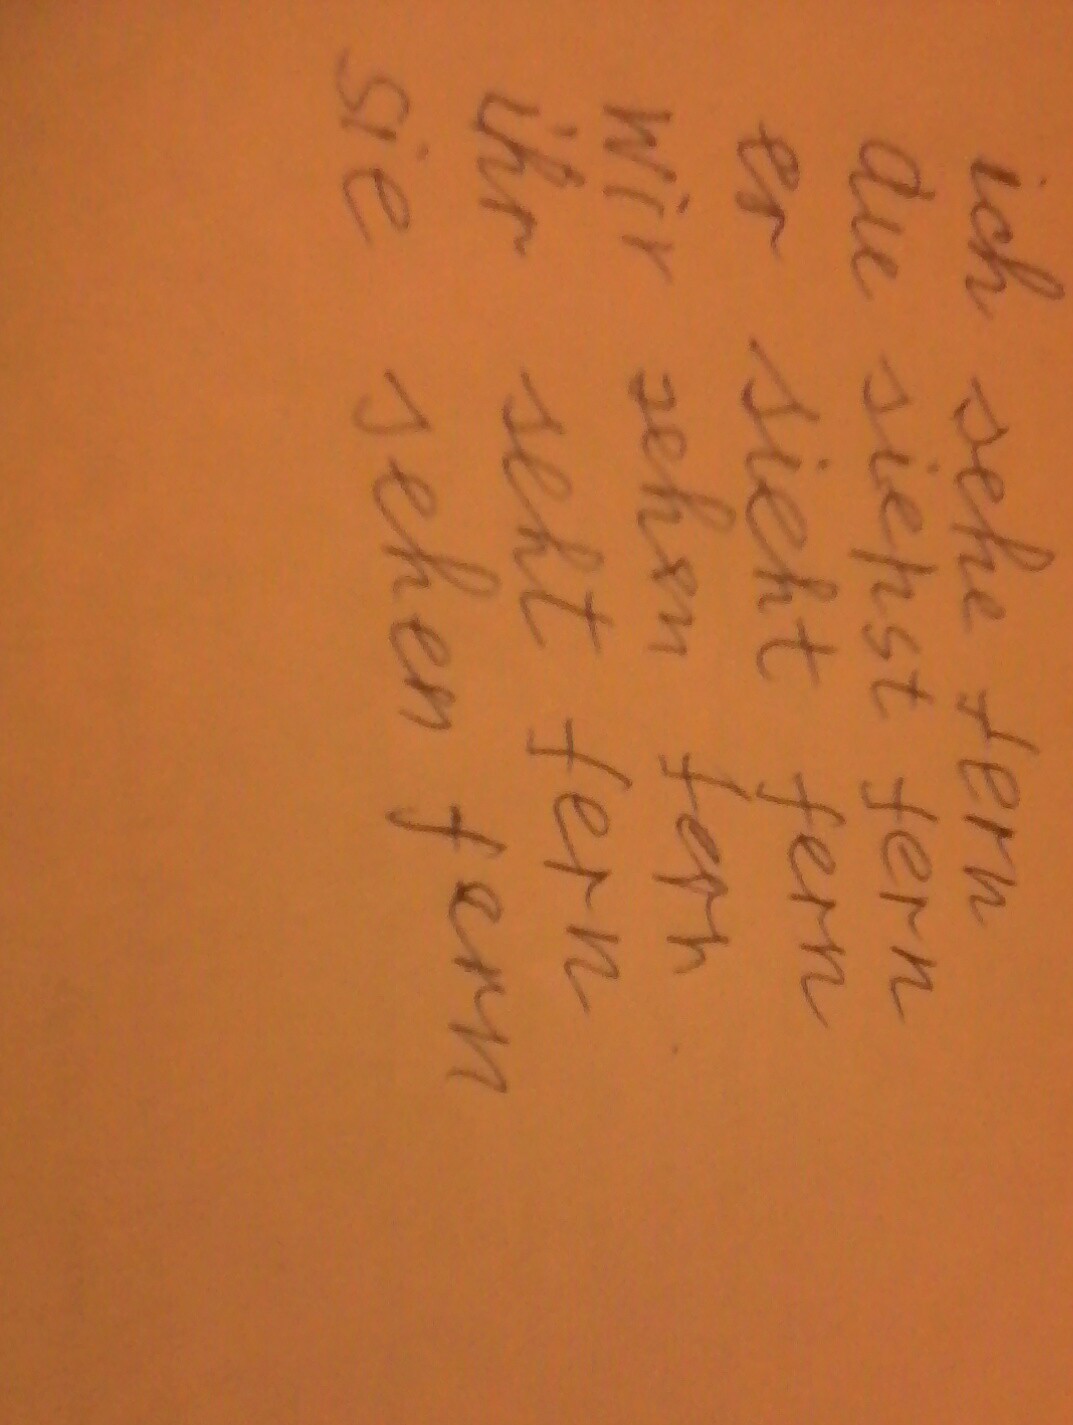 ich sehe fern
due siehst fern
er sieht fern
Wir sehen fern
ihr seht fern
Sie sehen fern